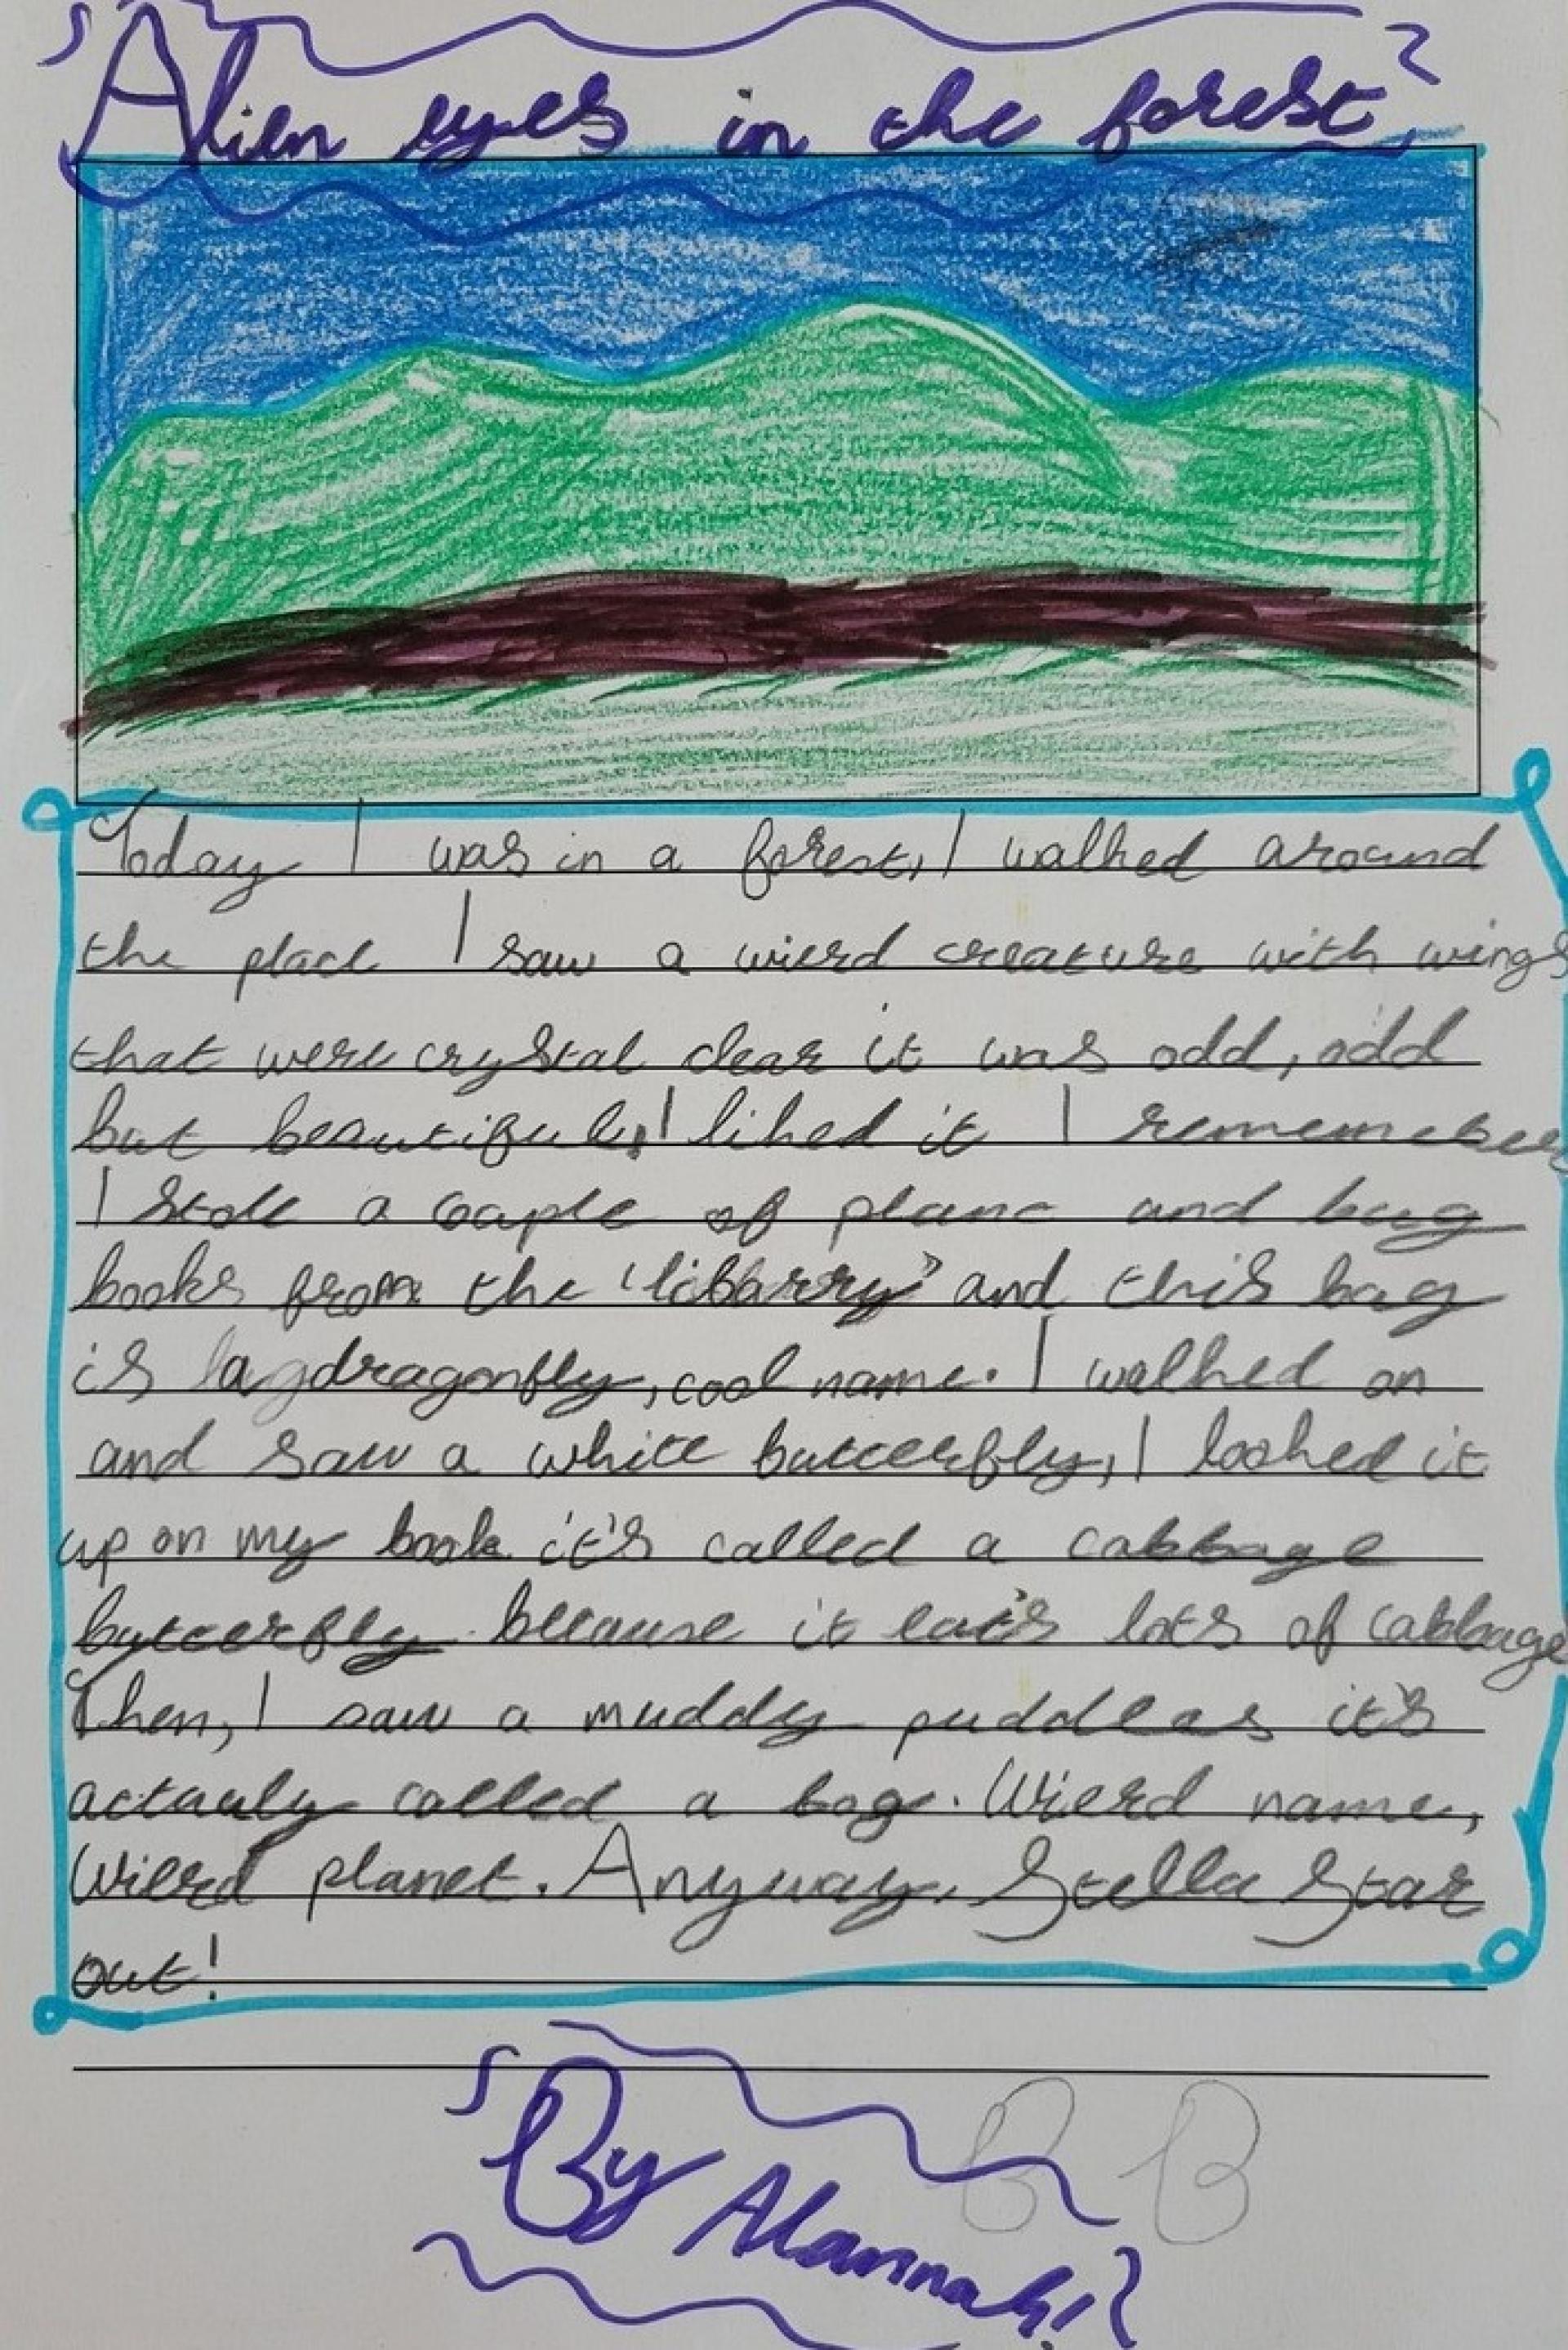 Alien eyes in the forest
Today I was in a forest, I walked around
the place I saw a wierd creature with wings
that were crystal clear it was odd, odd
but beautiful, I liked it I rememeber
I stole a couple of plant and bug
books from the 'libarry' and this bug
is a dragonfly, cool name. I walked on
and saw a white butterfly, I looked it
up on my book it's called a cabbage
butterfly because it eat's lots of cabbage
Then, I saw a muddy puddle as it's
actauly called a bog. Wierd name,
Wierd planet. Anyway, Stella Star
out!
By Alannah!
B B